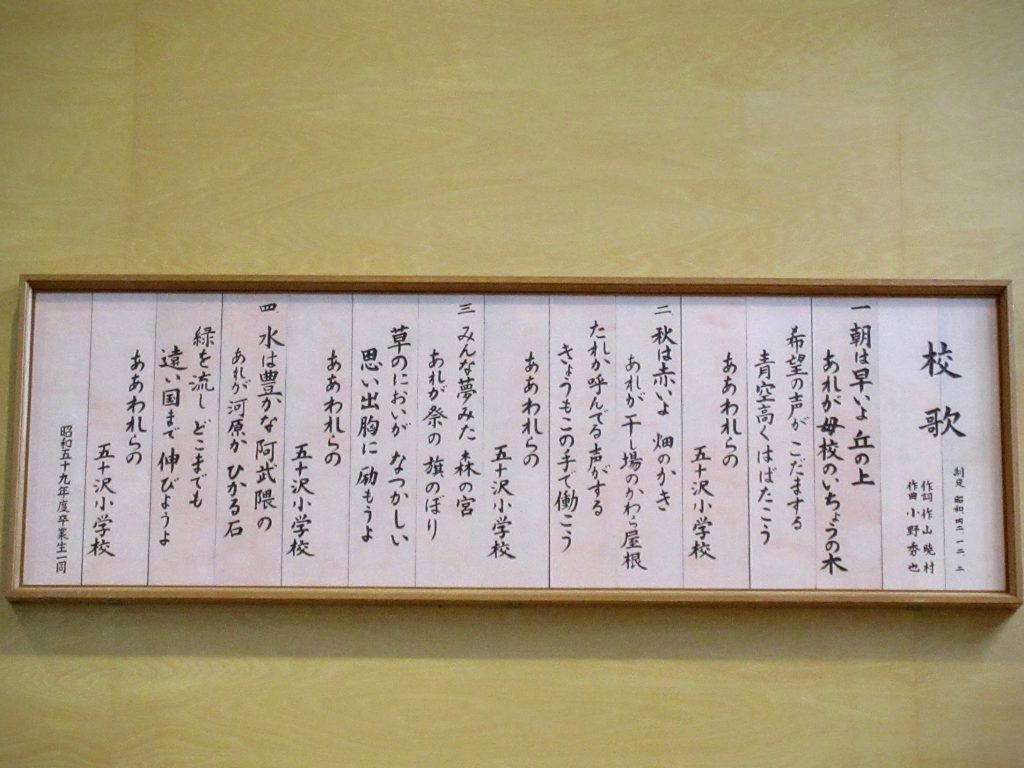 校歌
制定 昭和四二・一二・二
作詞 作山暁村
作曲 小野秀也
一 朝は早いよ 丘の上
あれが母校のいちょうの木
希望の声が こだまする
青空高くはばたこう
ああわれらの
五十沢小学校
二 秋は赤いよ 畑のかき
あれが干し場のかわら屋根
たれか呼んでる声がする
きょうもこの手で働こう
ああわれらの
五十沢小学校
三 みんな夢みた 森の宮
あれが祭の 旗のぼり
草のにおいが なつかしい
思い出胸に 励もうよ
ああわれらの
五十沢小学校
四 水は豊かな 阿武隈の
あれが河原か ひかる石
緑を流し どこまでも
遠い国まで 伸びようよ
ああわれらの
五十沢小学校
昭和五十九年度卒業生一同